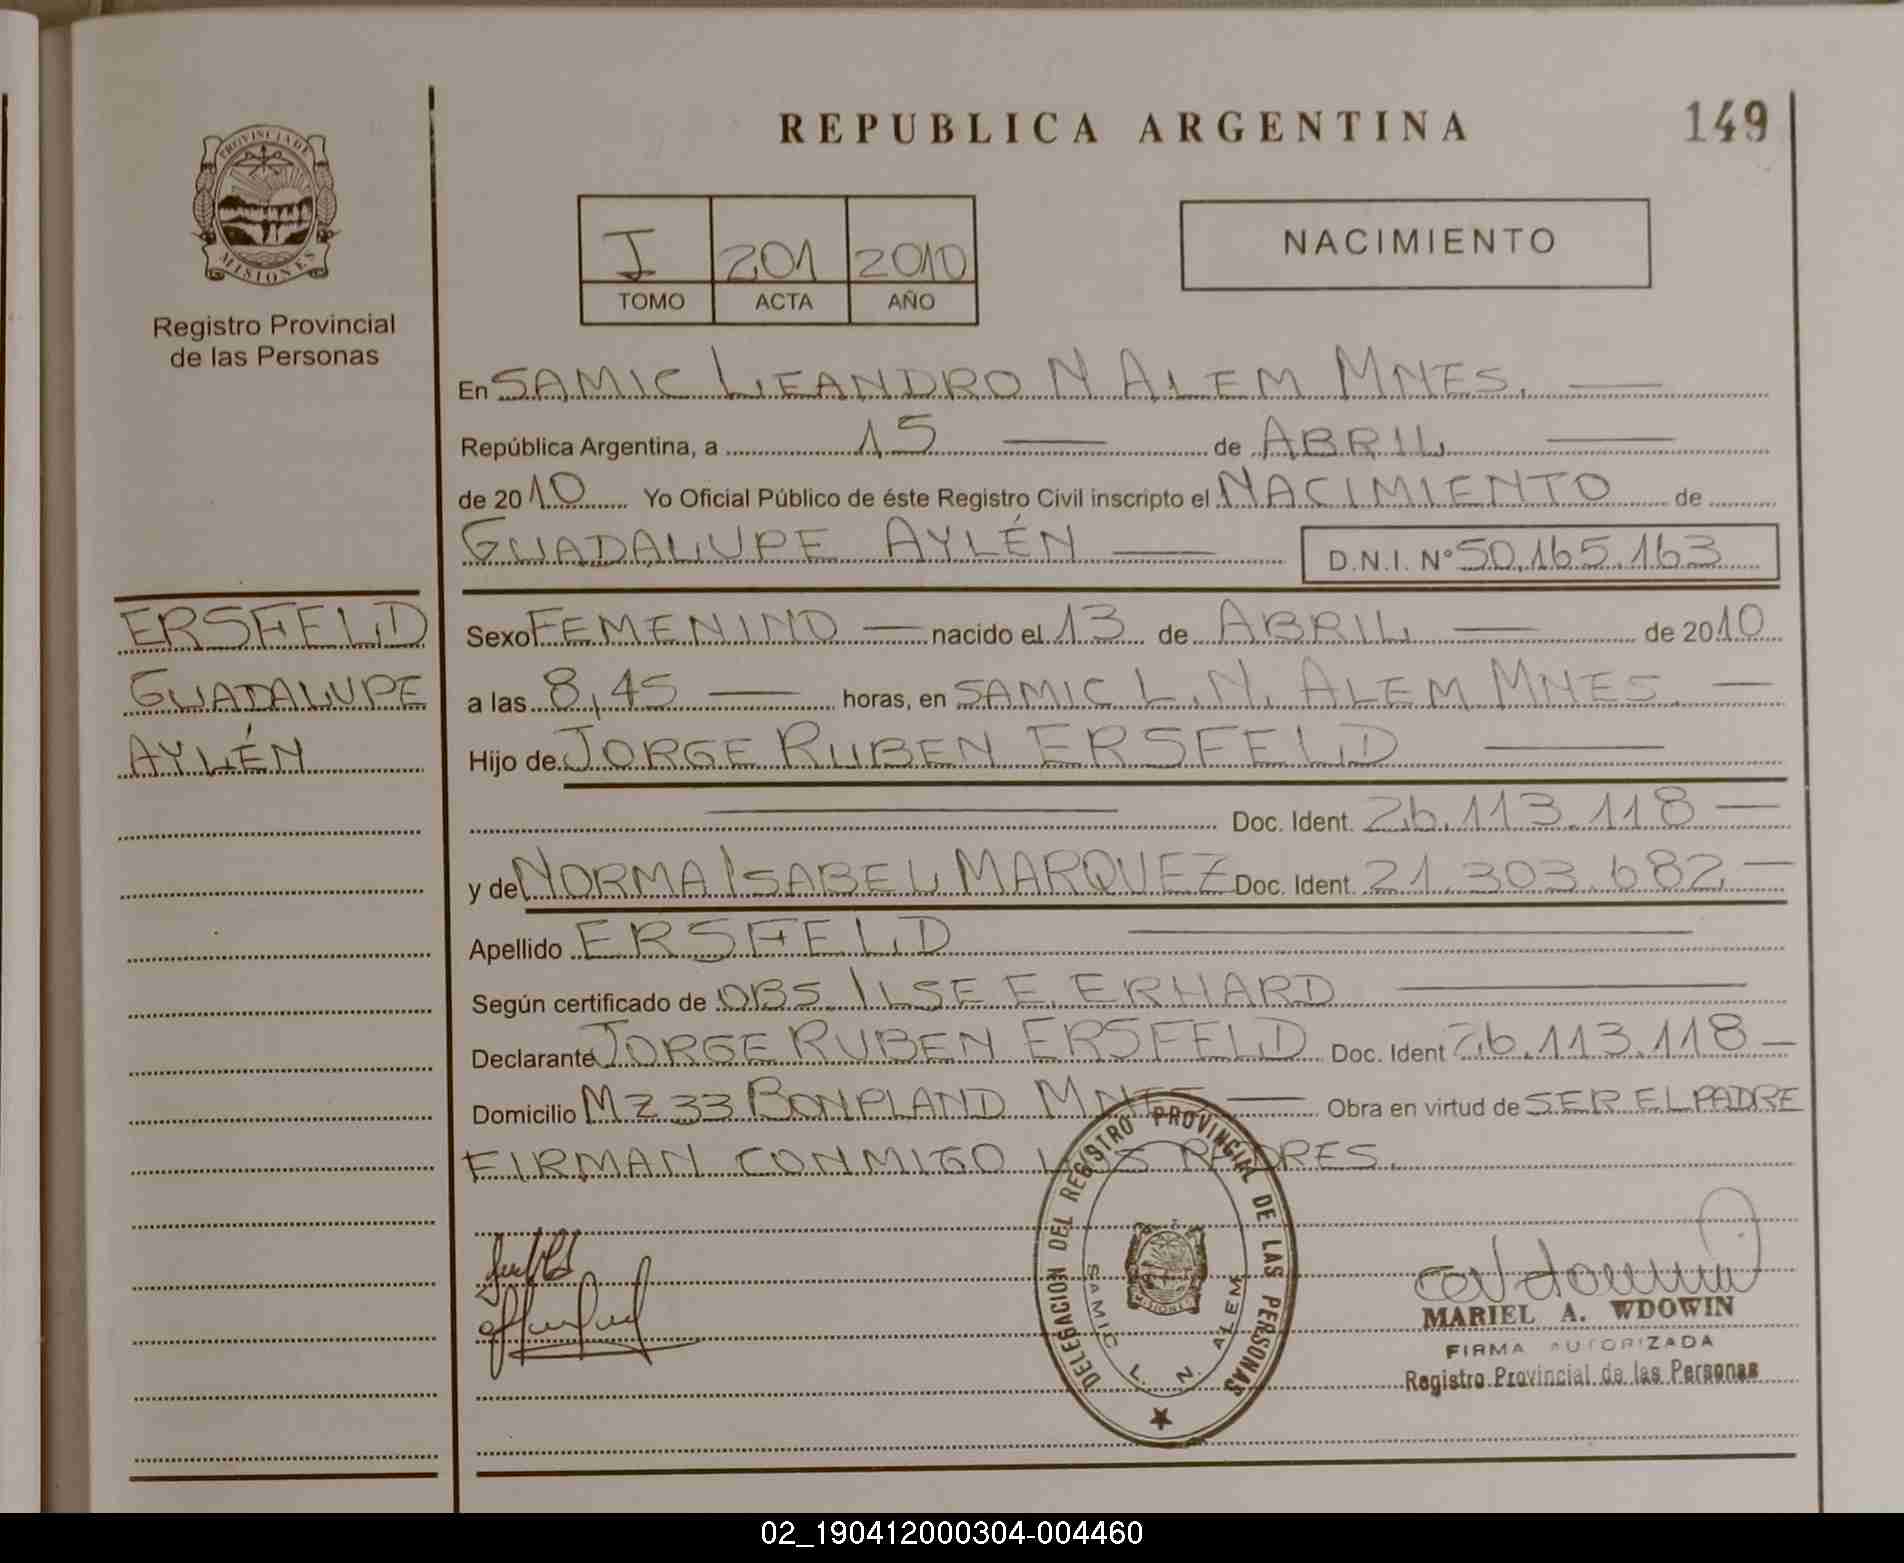 REPUBLICA ARGENTINA
149
PROVINCIA DE
MISIONES
Registro Provincial
de las Personas
I 201 2010
TOMO ACTA AÑO
NACIMIENTO
En SAMIC LEANDRO N ALEM MNES.
República Argentina, a 15 de ABRIL
de 2010 Yo Oficial Público de éste Registro Civil inscripto el NACIMIENTO de
GUADALUPE AYLÉN D.N.I. N° 50.165.163
ERSFELD
GUADALUPE
AYLÉN
Sexo FEMENINO nacido el 13 de ABRIL de 2010
a las 8,45 horas, en SAMIC L.N. ALEM MNES
Hijo de JORGE RUBEN ERSFELD
Doc. Ident. 26.113.118
y de NORMA ISABEL MARQUEZ Doc. Ident. 21.303.682
Apellido ERSFELD
Según certificado de OBS. ILSE E. ERHARD
Declarante JORGE RUBEN ERSFELD Doc. Ident 26.113.118
Domicilio MZ 33 BONPLAND MNES Obra en virtud de SER EL PADRE
FIRMAN CONMIGO LOS PADRES.
DELEGACION DEL REGISTRO PROVINCIAL DE LAS PERSONAS
SAMIC L. N. ALEM
MISIONES
MARIEL A. WDOWIN
FIRMA AUTORIZADA
Registro Provincial de las Personas
02_190412000304-004460